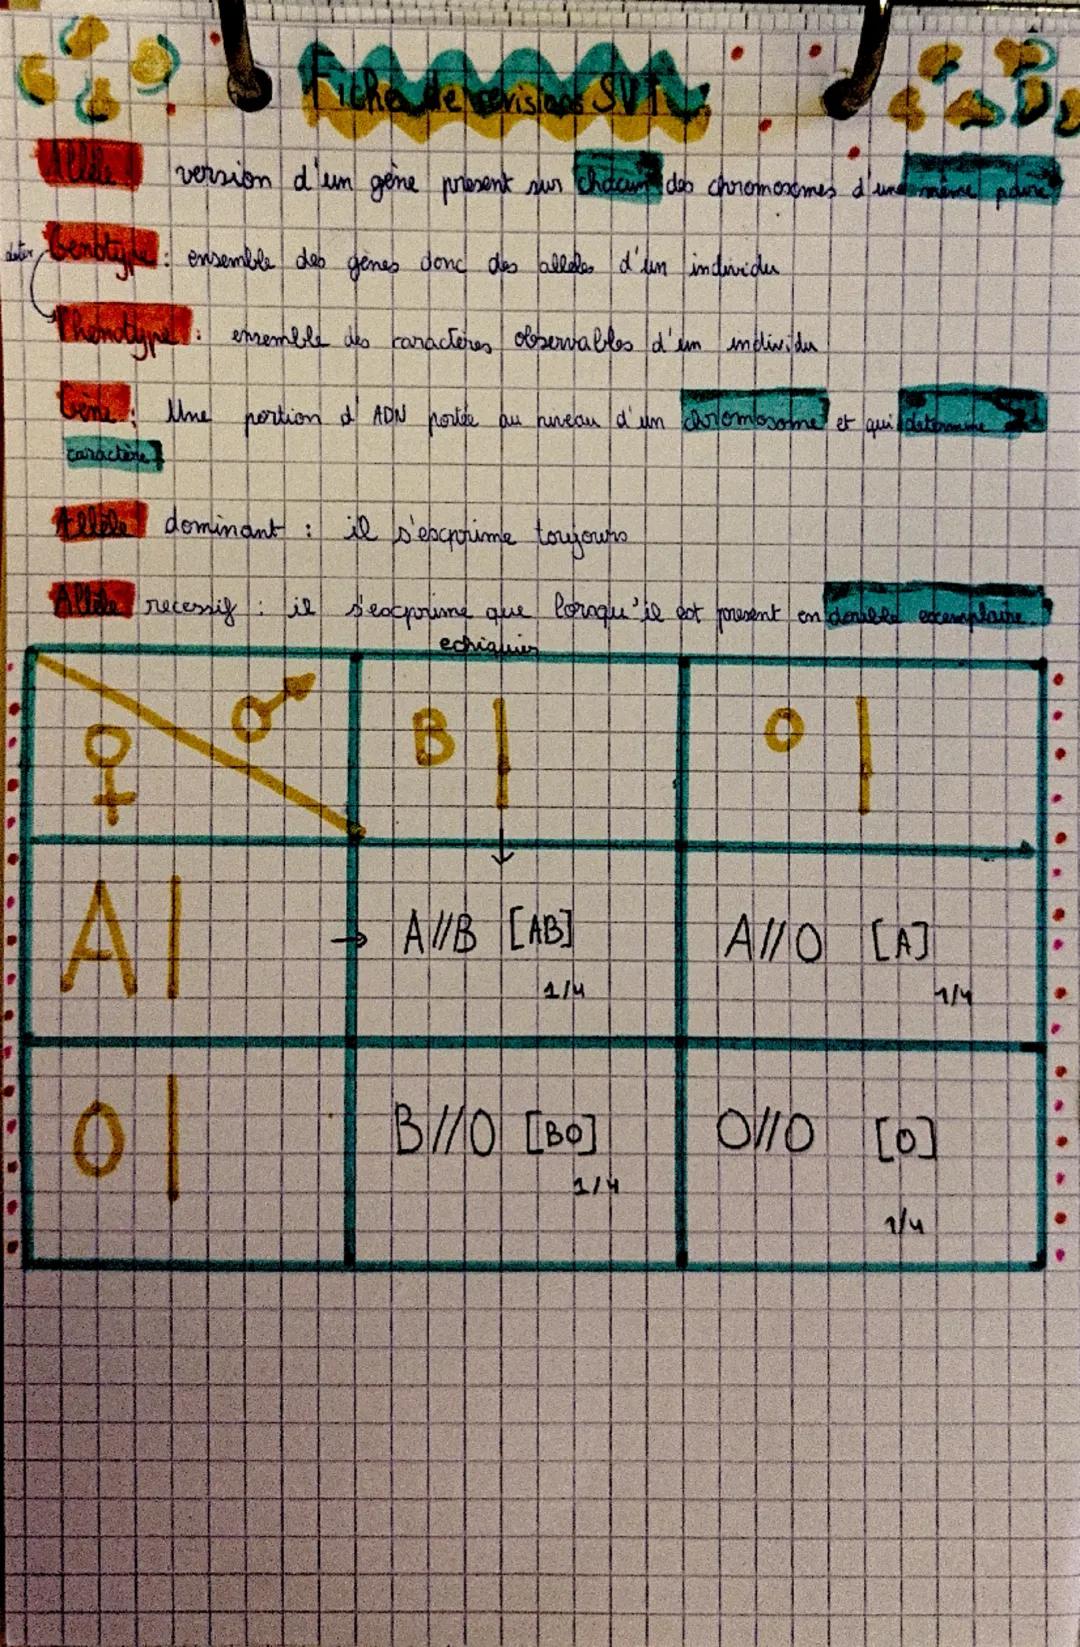 Fiche de revisions SVT
Allèle version d'un gène present sur chacun des chromosomes d'une même paire
deter Genotype : ensemble des gènes donc des allèles d'un individu
Phénotype : ensemble des caractères observables d'un individu
Gène : Une portion d'ADN portée au niveau d'un chromosome et qui determine
caractère
Allèle dominant : il s'exprime toujours
Allèle recessif : il s'exprime que lorsqu'il est present en double exemplaire.
echiquier
♀ ♂ B| O|
A| → A//B [AB] A//O [A]
1/4 1/4
O| B//O [BO] O//O [O]
1/4
1/4